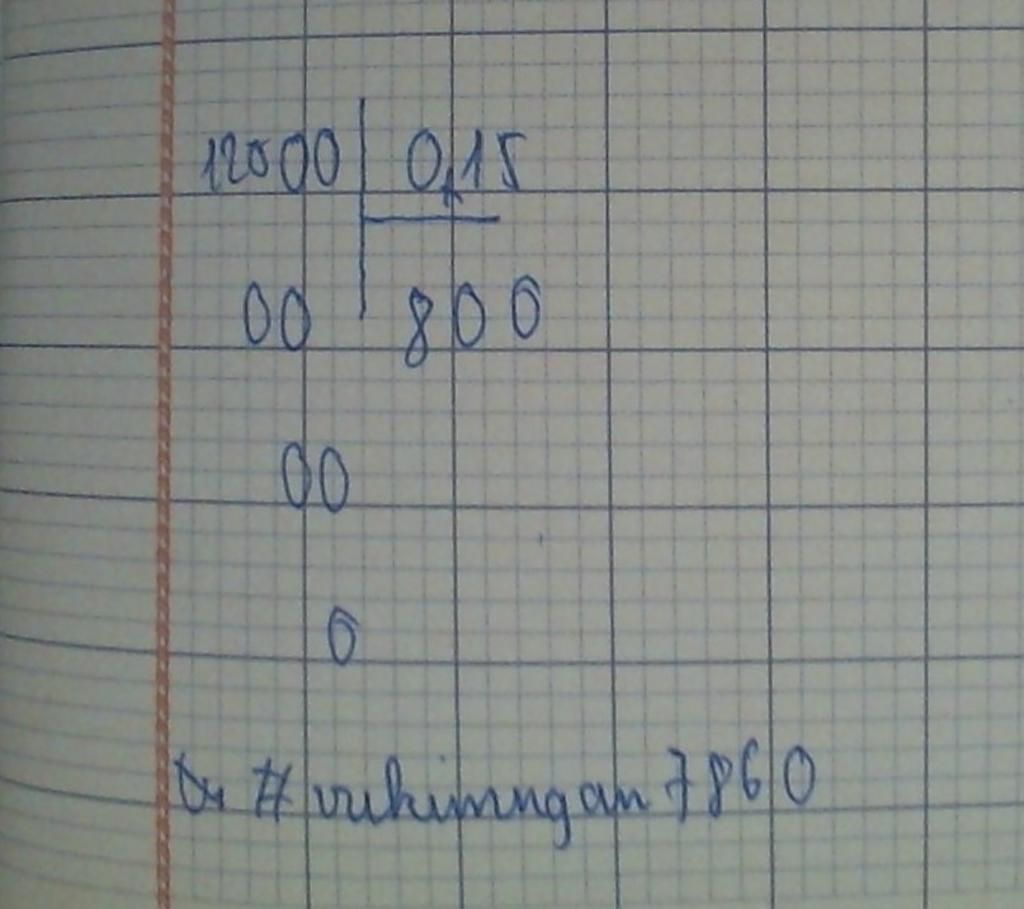 12000 0,15
00 800
00
0
# vukimngan7860